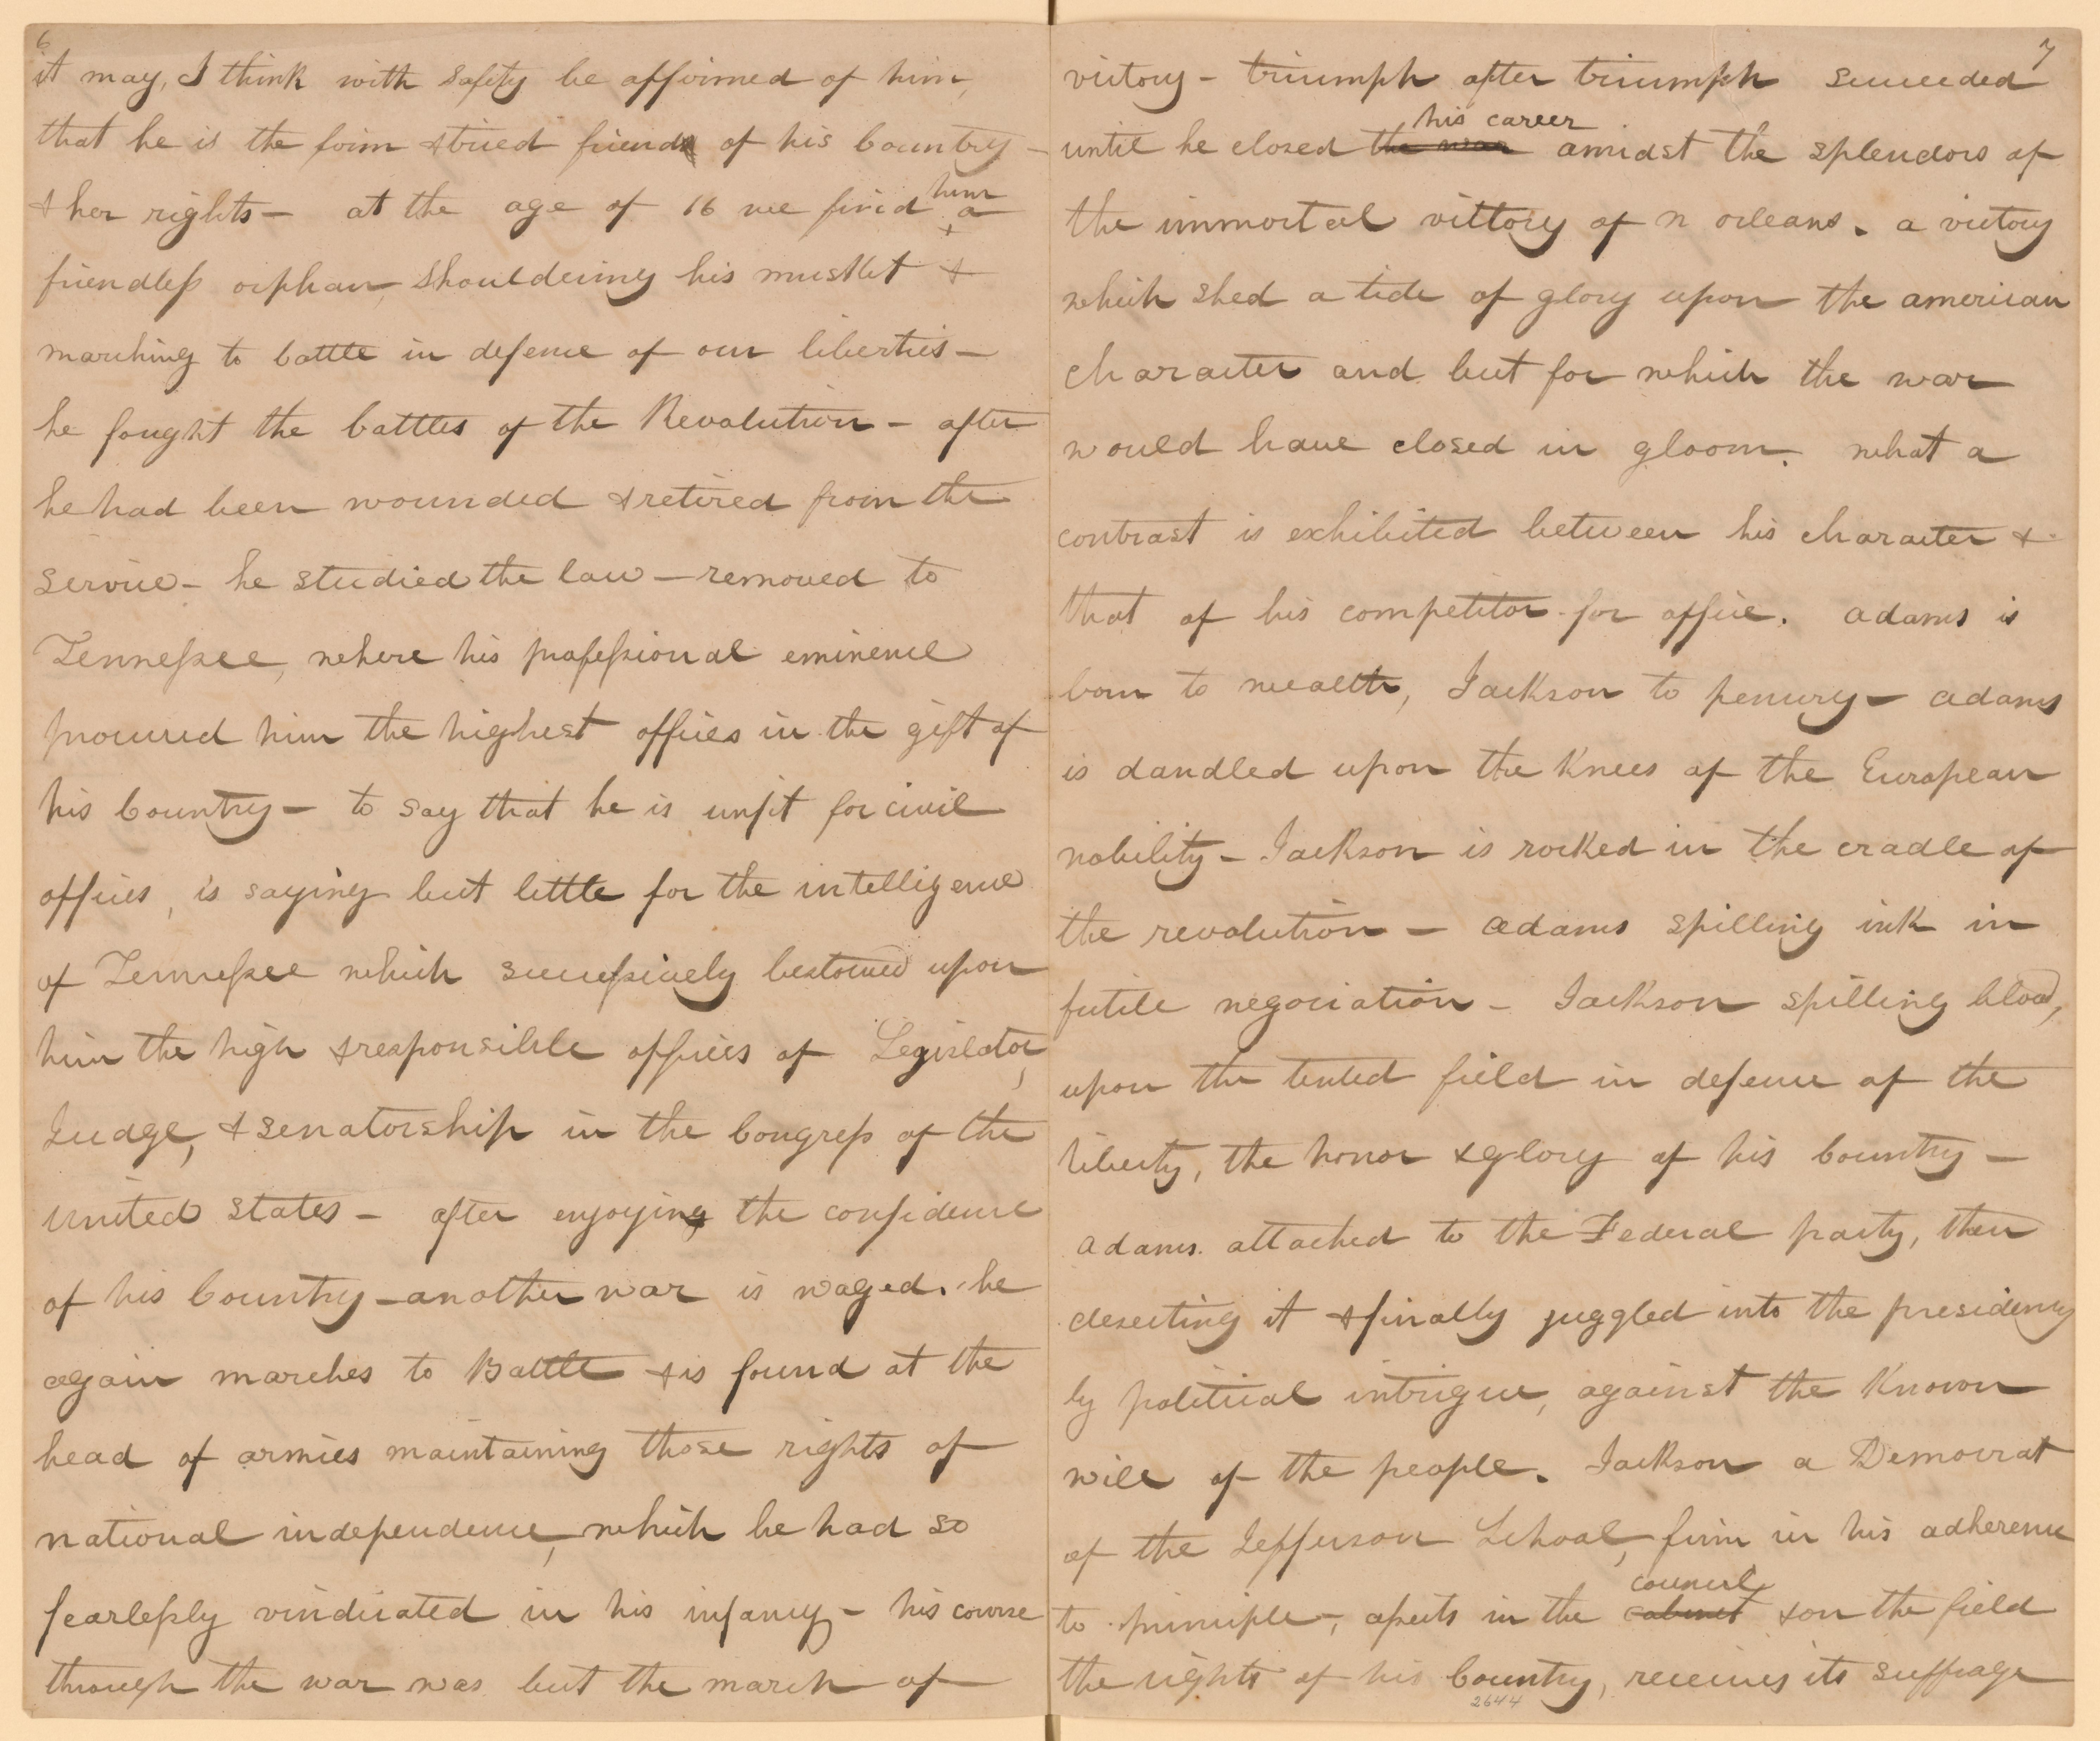 6
it may, I think with safety be affirmed of him,
that he is the firm & tried friend of his Country -
& her rights - at the age of 16 we find him a
friendless orphan, shouldering his musket &
marching to battle in defence of our liberties -
he fought the battles of the Revolution - after
he had been wounded & retired from the
service - he studied the law - removed to
Tennessee, where his professional eminence
procured him the highest offices in the gift of
his Country - to say that he is unfit for civil
offices, is saying but little for the intelligence
of Tennessee which successively bestowed upon
him the high & responsible offices of Legislator,
Judge, & senatorship in the Congress of the
United States - after enjoying the confidence
of his Country - another war is waged. he
again marches to Battle & is found at the
head of armies maintaining those rights of
national independence, which he had so
fearlessly vindicated in his infancy - his course
through the war was but the march of
7
victory - triumph after triumph succeeded
his career
until he closed the war amidst the splendors of
the immortal victtory of N orleans. a victory
which shed a tide of glory upon the american
character and but for which the war
would have closed in gloom. what a
contrast is exhibited between his character &
that of his competitor for office. adams is
born to wealth, Jackson to penury - adams
is dandled upon the knees of the European
nobility - Jackson is rocked in the cradle of
the revolution - adams spilling ink in
futile negociation - Jackson spilling blood,
upon the tented field in defence of the
liberty, the honor & glory of his Country -
adams attached to the Federal party, then
deserting it & finally juggled into the presidency
by political intrigue, against the known
will of the people. Jackson a Democrat
of the Jefferson School, firm in his adherence
council
to principle -, asserts in the cabinet & on the field
the rights of his Country, receives its suffrage
2644